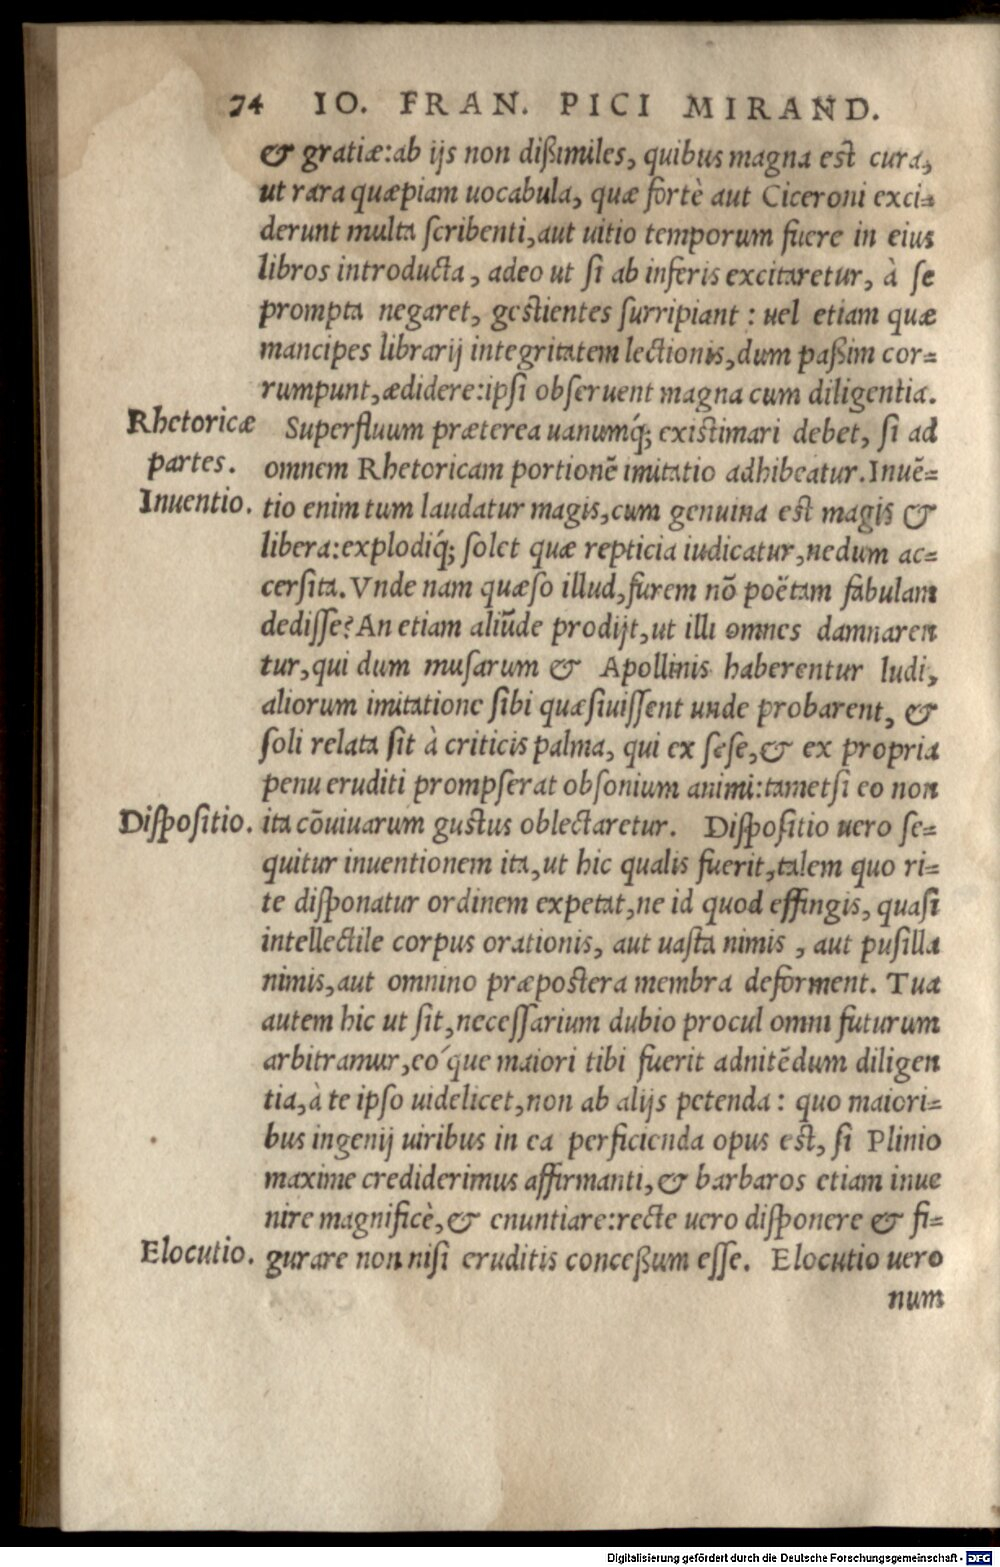 74 IO. FRAN. PICI MIRAND.
& gratiæ:ab ijs non dißimiles, quibus magna est cura,
ut rara quæpiam uocabula, quæ fortè aut Ciceroni exci=
derunt multa scribenti,aut uitio temporum fuere in eius
libros introducta, adeo ut si ab inferis excitaretur, à se
prompta negaret, gestientes surripiant : uel etiam quæ
mancipes librarij integritatem lectionis,dum paßim cor=
rumpunt,ædidere:ipsi obseruent magna cum diligentia.
Rhetoricæ Superfluum præterea uanumq́; existimari debet, si ad
partes. omnem Rhetoricam portionẽ imitatio adhibeatur.Inuẽ=
Inuentio. tio enim tum laudatur magis,cum genuina est magis &
libera:explodiq́; solet quæ repticia iudicatur,nedum ac=
cersita.Vnde nam quæso illud,furem nõ poëtam fabulam
dedisse?An etiam aliũde prodijt,ut illi omnes damnaren
tur,qui dum musarum & Apollinis haberentur ludi,
aliorum imitatione sibi quæsiuissent unde probarent, &
soli relata sit à criticis palma, qui ex sese,& ex propria
penu eruditi prompserat obsonium animi:tametsi eo non
Dispositio. ita cõuiuarum gustus oblectaretur. Dispositio uero se=
quitur inuentionem ita,ut hic qualis fuerit,talem quo ri=
te disponatur ordinem expetat,ne id quod effingis, quasi
intellectile corpus orationis, aut uasta nimis , aut pusilla
nimis,aut omnino præpostera membra deforment. Tua
autem hic ut sit,necessarium dubio procul omni futurum
arbitramur,eo´que maiori tibi fuerit adnitẽdum diligen
tia,à te ipso uidelicet,non ab alijs petenda : quo maiori=
bus ingenij uiribus in ea perficienda opus est, si Plinio
maxime crediderimus affirmanti,& barbaros etiam inue
nire magnificè,& enuntiare:recte uero disponere & fi=
Elocutio. gurare non nisi eruditis conceßum esse. Elocutio uero
num
Digitalisierung gefördert durch die Deutsche Forschungsgemeinschaft - DFG